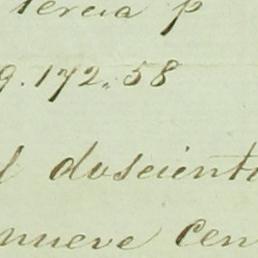 tercia p
9.172.58
l doscient
nueve cen